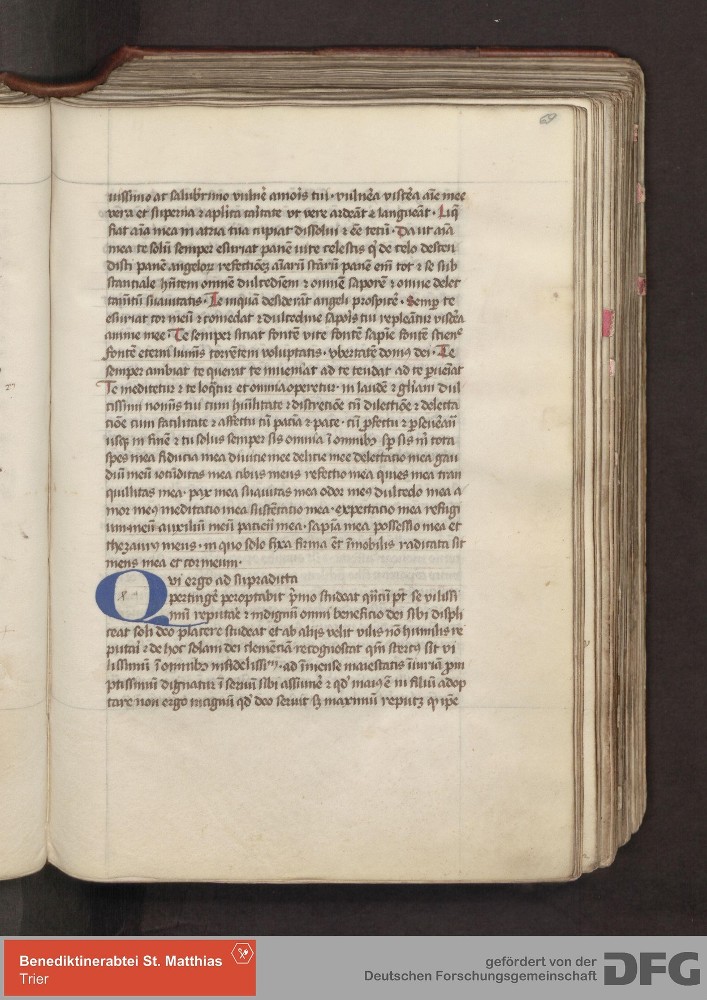 69
uissimo ac salub̄rimo vulnē amoīs tui · vulnēa viscēa aīe mee
vera et superna ⁊ aplīca caītate vt vere ardeāt ⁊ langueāt · Liq̄
fiat aīa mea in atria tua cupiat dissolui ⁊ ēē tecū · Da ut aīa
mea te solū semper esuriat panē uite celestis q̄ de celo descen
disti panē angeloꝝ refectiōeꝫ aīarū sc̄arū panē
stantiale hn̄tem omnē dulcediēm ⁊ omnē saporē ⁊ omne delec
tam̄tū suauitatis · Te inquā desiderāt angeli prospic̄e · Semp̲ te
esuriat cor meū ⁊ comedat ⁊ dulcedine sapoīs tui repleāntur viscēa
anime mee · Te semper sitiat fontē vite fontē sapīe fontē scien̄e
fontē eterni lumīs torrētem voluptatis · vbertatē domꝰ dei · Te
semper ambiat te querat te inueniat ad te tendat ad te p̲ueīat
Te meditetur ⁊ te loq̄tur et omnia operetur · in laudē ⁊ gl̄iam dul
cissimi nomīs tui cum hūilitate ⁊ discretiōe cū dilectiōe ⁊ delecta
tiōe cum facilitate ⁊ affectu cū paciā ⁊ pace · cū p̲fectu ⁊ p̲seuēan̄
usqꝫ in finē ⁊ tu solus semper sis omnia ī omnibꝰ sp̲ sis m̄ tota
spes mea fiducia mea diuicie mee delicie mee delectatio mea gau
diū meū iocūditas mea cibus meus refectio mea quies mea tran
quillitas mea · pax mea suauitas mea odor meꝰ dulcedo mea a
mor meꝰ meditatio mea sustētatio mea · expectatio mea refugi
um meū auxiliū meū mea · sapīa mea possessio mea et
thezaurꝰ meus · in quo solo fixa firma et īmobilis radicata sit
mens mea et cor meum ·
Qvi ergo ad supradicta
pertingē peroptabit p̄mo studeat q̄ntū pt̄ se vilissi
mū reputāe ⁊ indignū omni beneficio dei sibi displi
ceat soli deo placere studeat et ab aliis velit vilis nō humilis re
putai ⁊ de hoc solam dei clemēciā recognoscat qm̄ stercꝰ sit vi
lissimū ī omnibꝰ infidelissimꝰ · ad īmense maiestatis iniuriā p̲m
ptissimū dignatur ī seruū sibi assumē ⁊ qd̓ maiꝰ ē in filiū adop
tare non ergo magnū qd̓ deo seruit sꝫ maximū reputꝫ q̓ ip̄e
Benediktinerabtei St. Matthias
Trier
gefördert von der
Deutschen Forschungsgemeinschaft
DFG